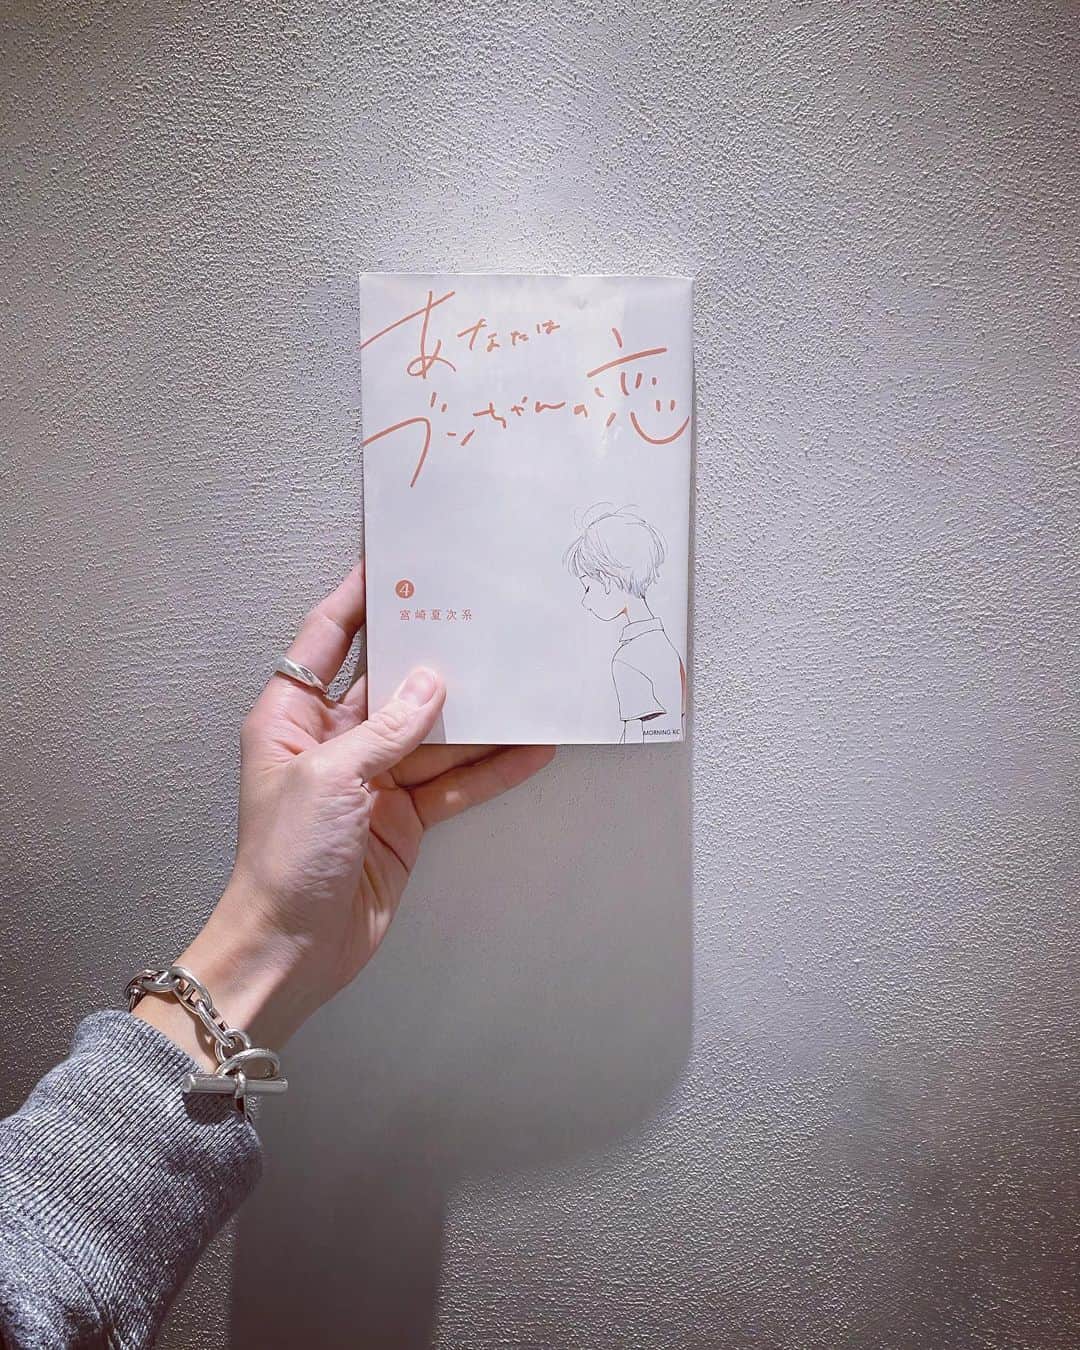 あなたは
ブンちゃんの恋
4
宮崎夏次系
MORNING KC